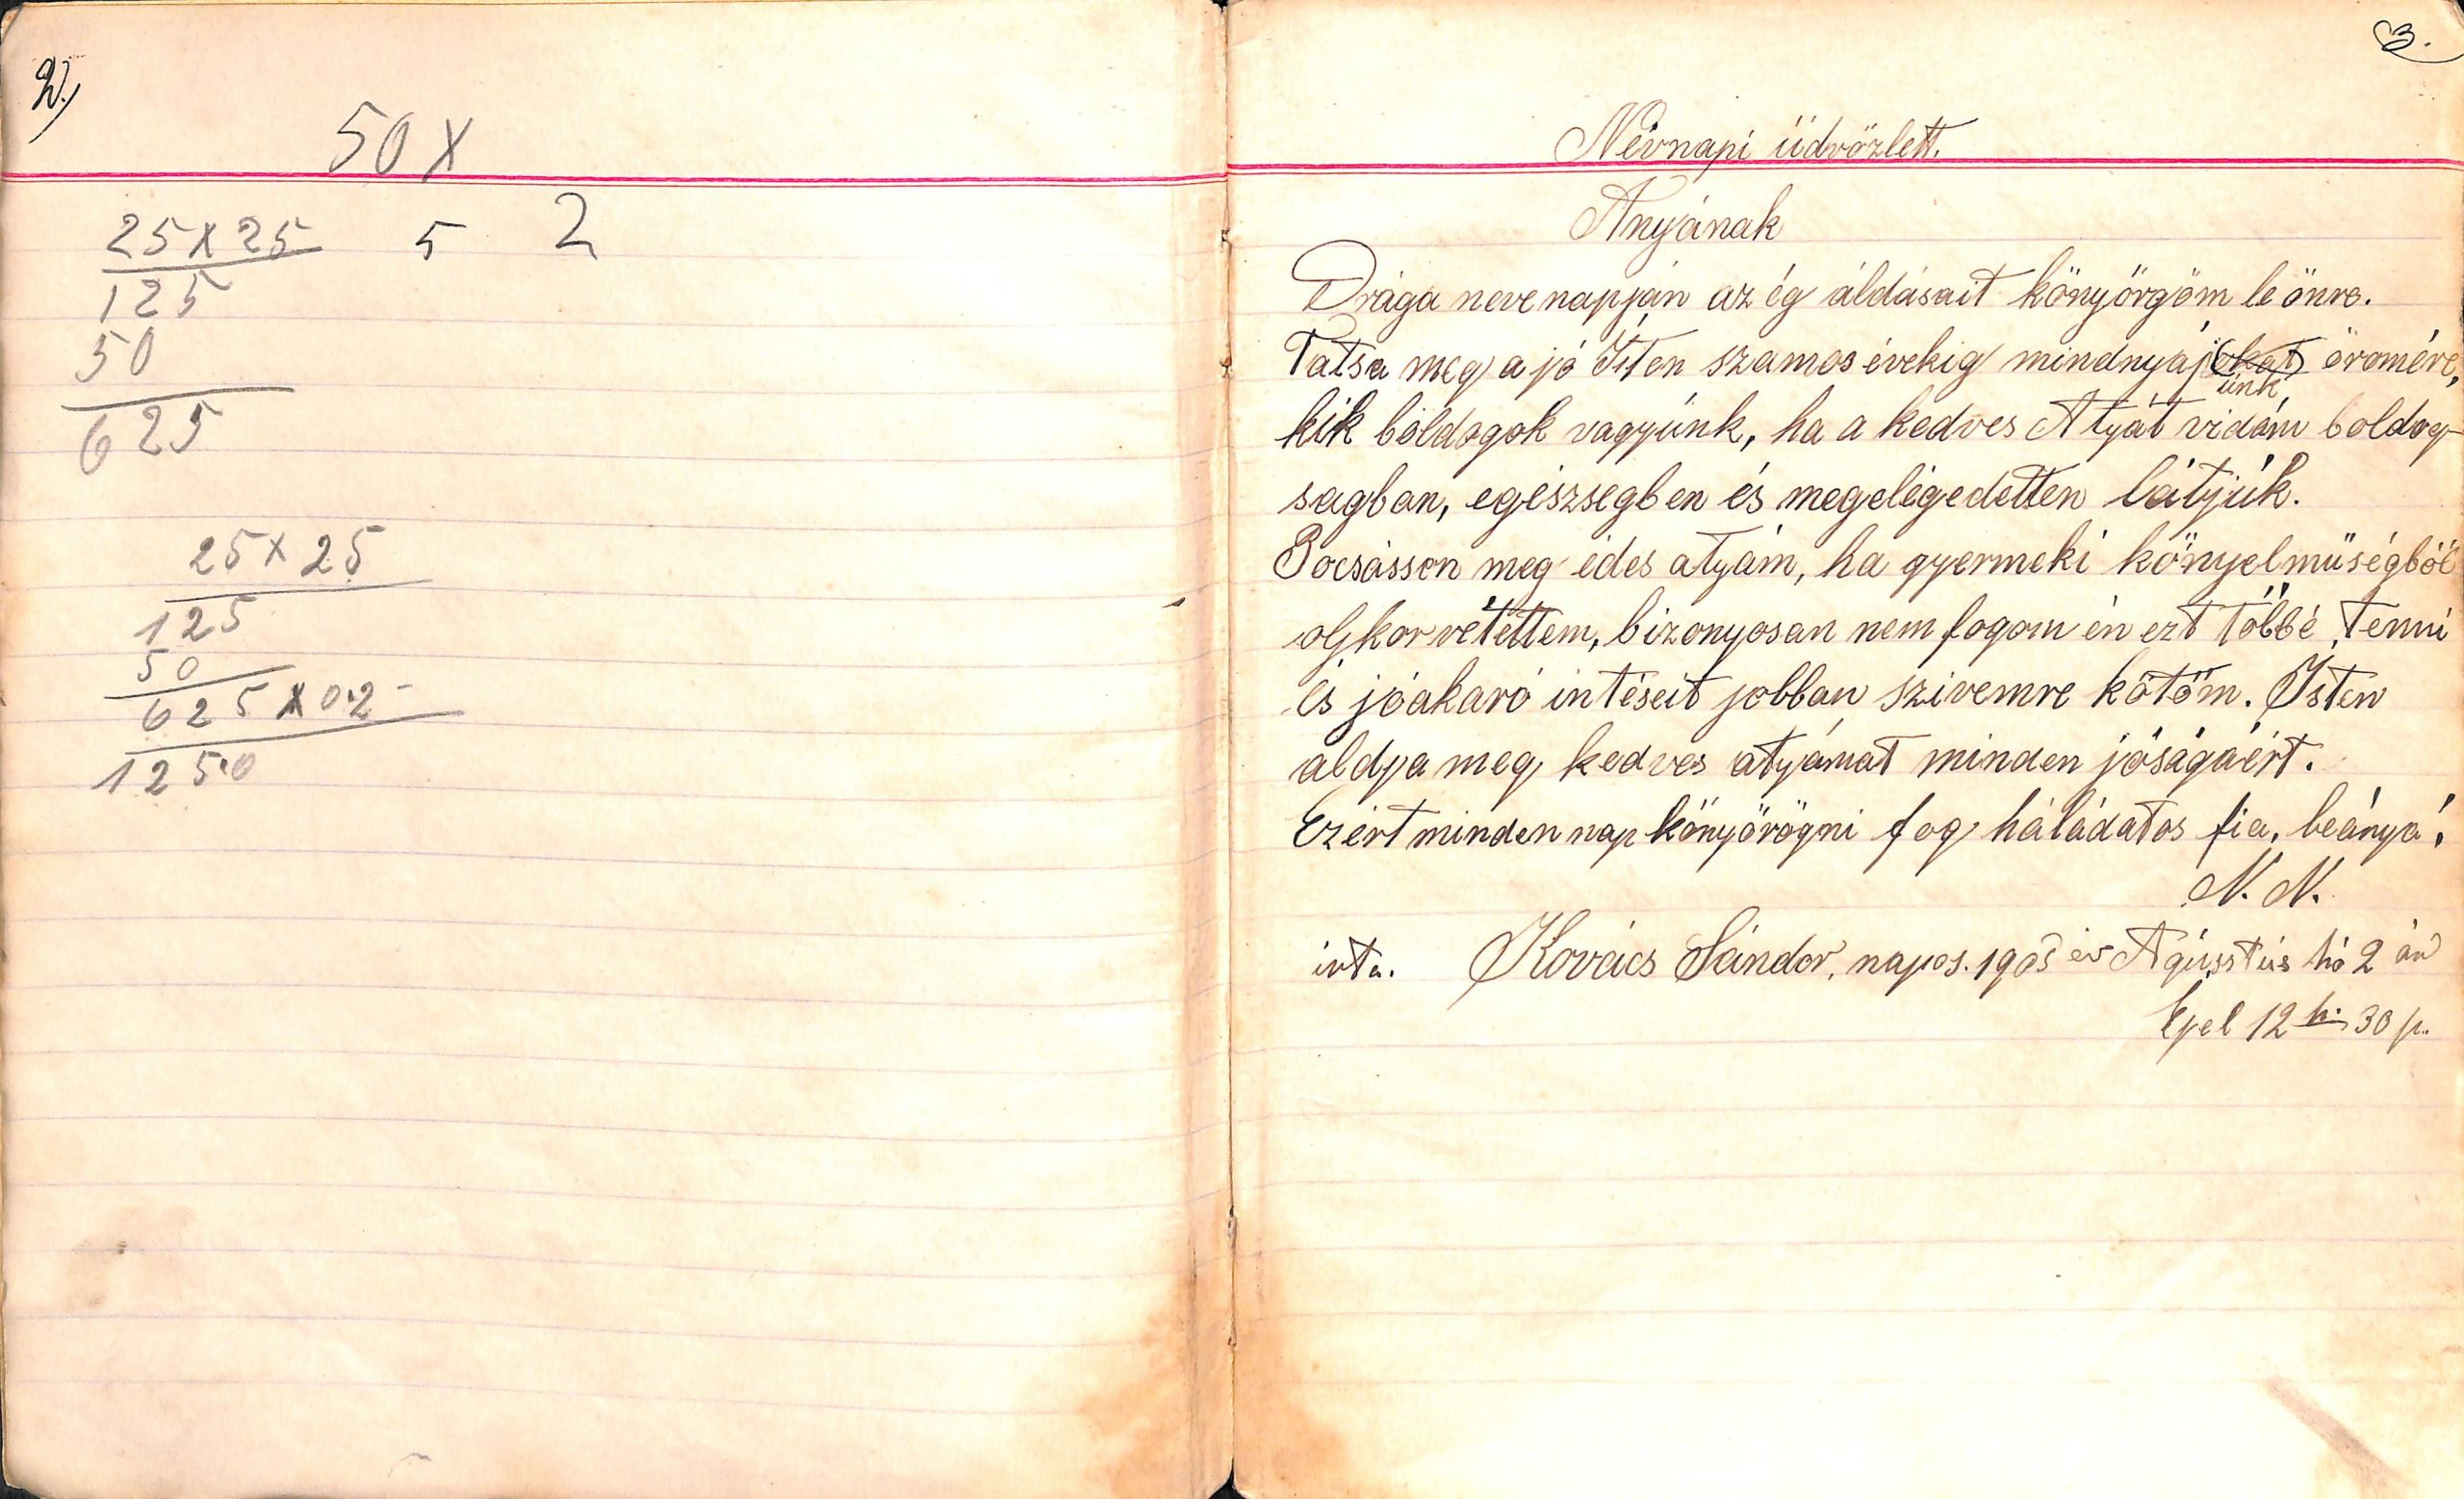 2.)
50 x
25 x 25 5 2
125
50
625
25 x 25
125
50
625 x 0.2
125.0
3.
Névnapi üdvözlett.
Atnyának
Drága nevenapján az ég áldásait könyörgöm le önre.
Tatsa meg a jó Isten szamos évekig mindnyájokat örömére,
ünk
kik bóldogok vagyúnk, ha a kedves Atyát vidám boldog
sagban, egészsegben és megelégedetten látjúk.
Bocsásson meg édes atyám, ha gyermeki kőnyelműségből
olykor vétettem, bizonyosan nem fogom én ezt többé tenni
és jóakaró intéseit jobban szivemre kötöm. Isten
aldja meg kedves atyámat minden jóságáért.
Ezért minden nap könyörögni fog háládatos fia, leánya,
N. N.
irta. Kovács Sándor, napos. 1905 év Agússtús hó 2 án
Ejel 12 h. 30 p.